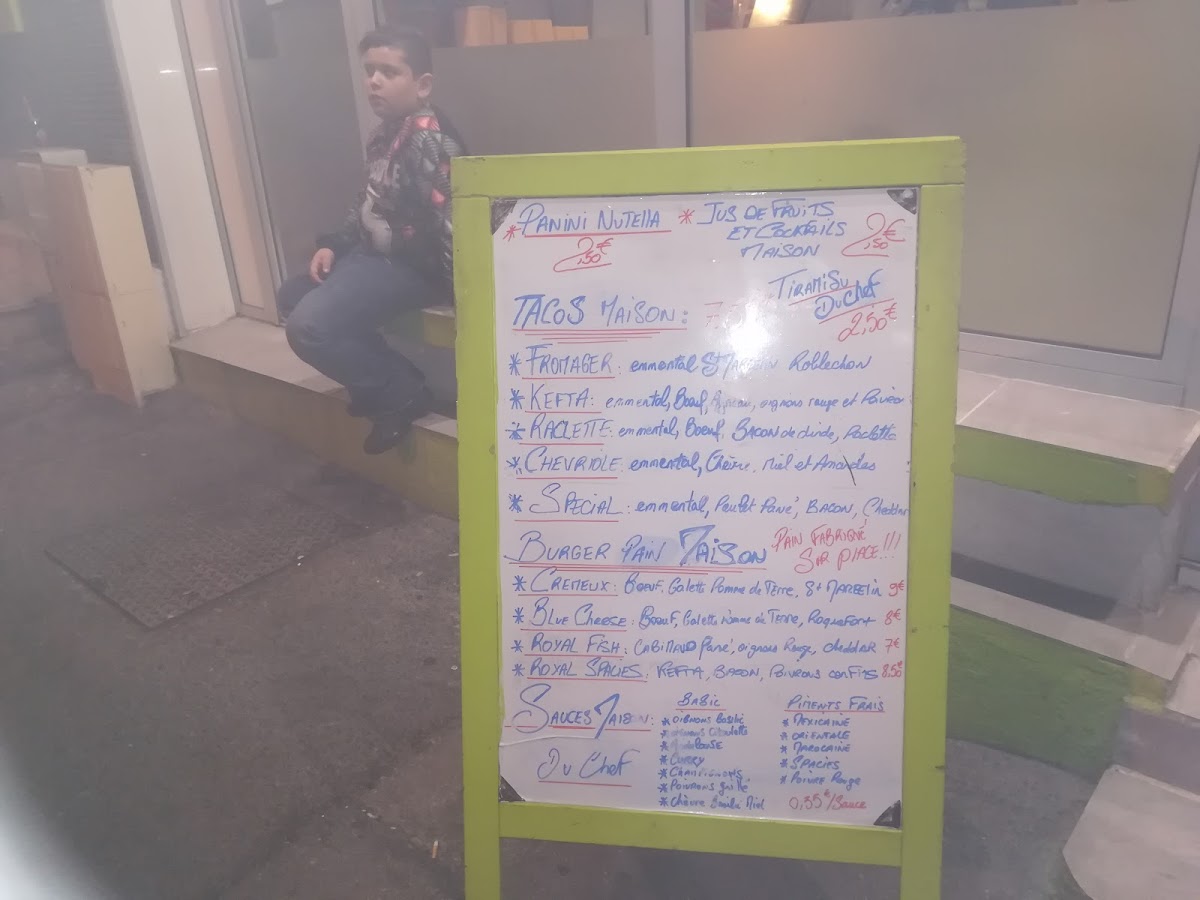 * PANINI NUTELLA
2,50€
* JUS DE FRUITS
ET COCKTAILS
MAISON
2,50€
TIRAMISU
DU CHEF
2,50€
TACOS MAISON: 7
* FROMAGER: emmental St MARCELIN Roblechon
* KEFTA: emmental, Boeuf, oignons rouge et Poivron
* RACLETTE: emmental, Boeuf, BACON de dinde, Raclette
* CHEVRIOLE: emmental, Chèvre, Miel et Amandes
* SPECIAL: emmental, Poulet Pané, BACON, Cheddar
BURGER PAIN MAISON
PAIN FABRIQUÉ
SUR PLACE!!!
* CREMEUX: BOEUF, Galette Pomme de Terre, St MARCELIN 9€
* BLUE CHEESE: BOEUF, Galette Pomme de TERRE, ROQUEFORT 8€
* ROYAL FISH: CABILLAUD Pané, oignons Rouge, cheddAR 7€
* ROYAL SPACIES: KEFTA, BACON, POIVRONS CONFITS 8.50€
SAUCES MAISON:
DU CHEF
BASIC
* OIGNONS BASILIC
* Ciboulette
* ANDALOUSE
* CURRY
* CHAMPIGNONS
* POIVRONS grillé
* Chèvre Miel
PIMENTS FRAIS
* MEXICAINE
* ORIENTALE
* MAROCAINE
* SPACIES
* POIVRE Rouge
0,35€/Sauce